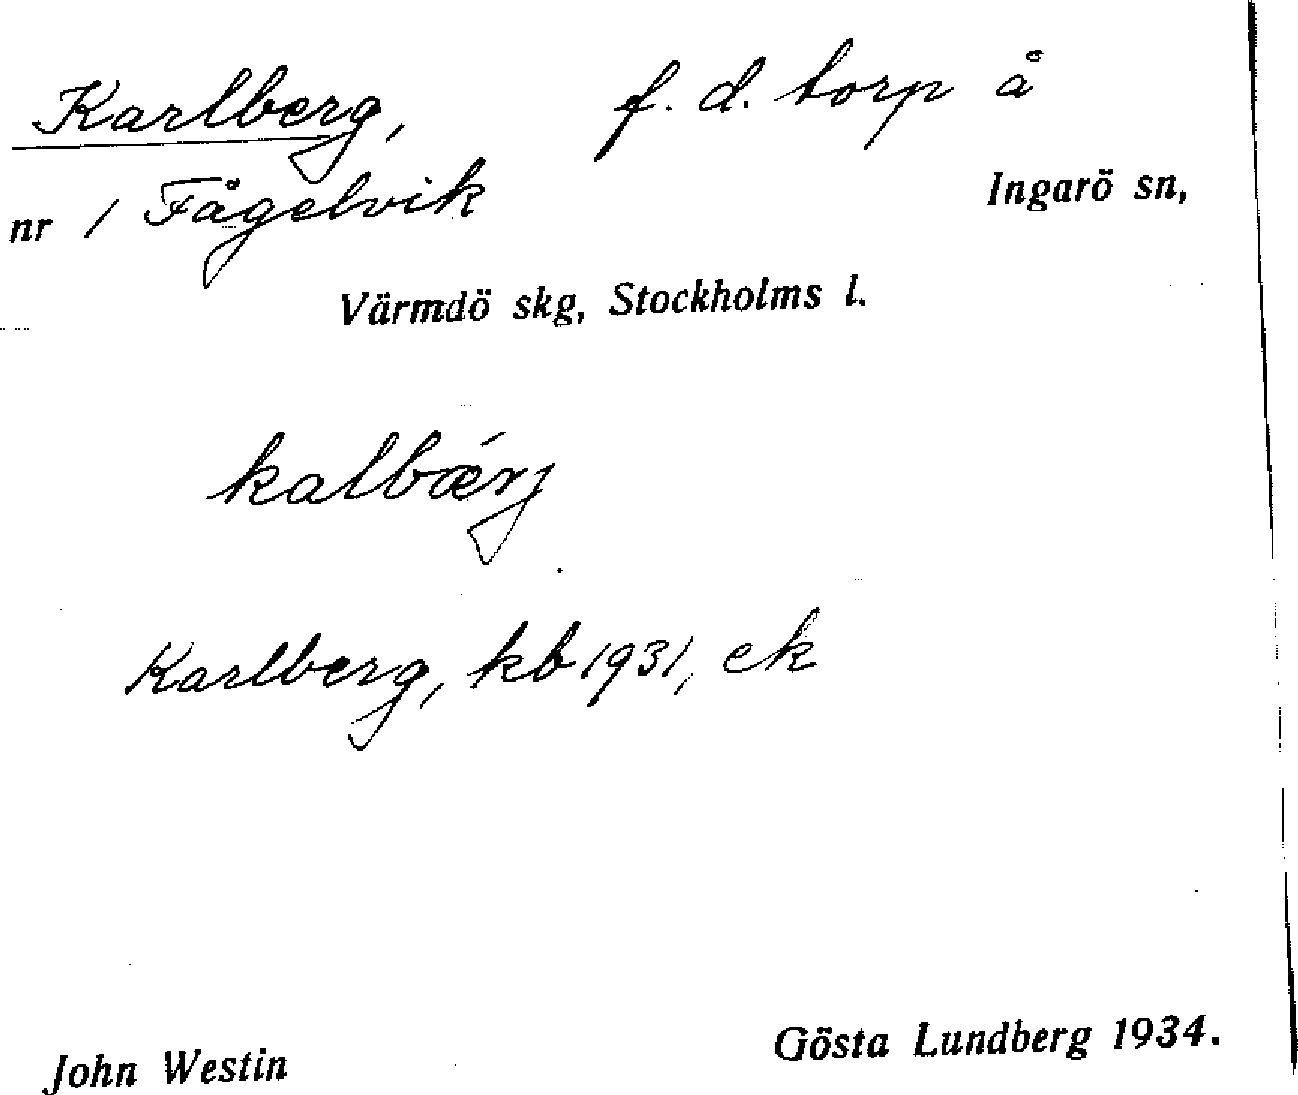 Karlberg, f. d. torp å
nr 1 Fågelvik Ingarö sn,
Värmdö skg, Stockholms l.
kalbǽrj
Karlberg, kb 1931, ek
John Westin Gösta Lundberg 1934.